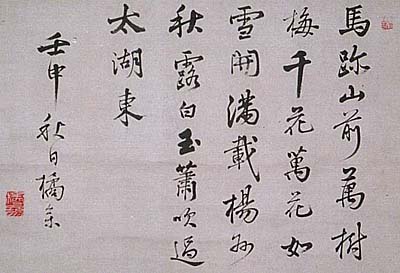 馬跡山前萬樹
梅千花萬花如
雪開滿載楊州
秋露白玉蕭吹過
太湖東
壬申秋日橘